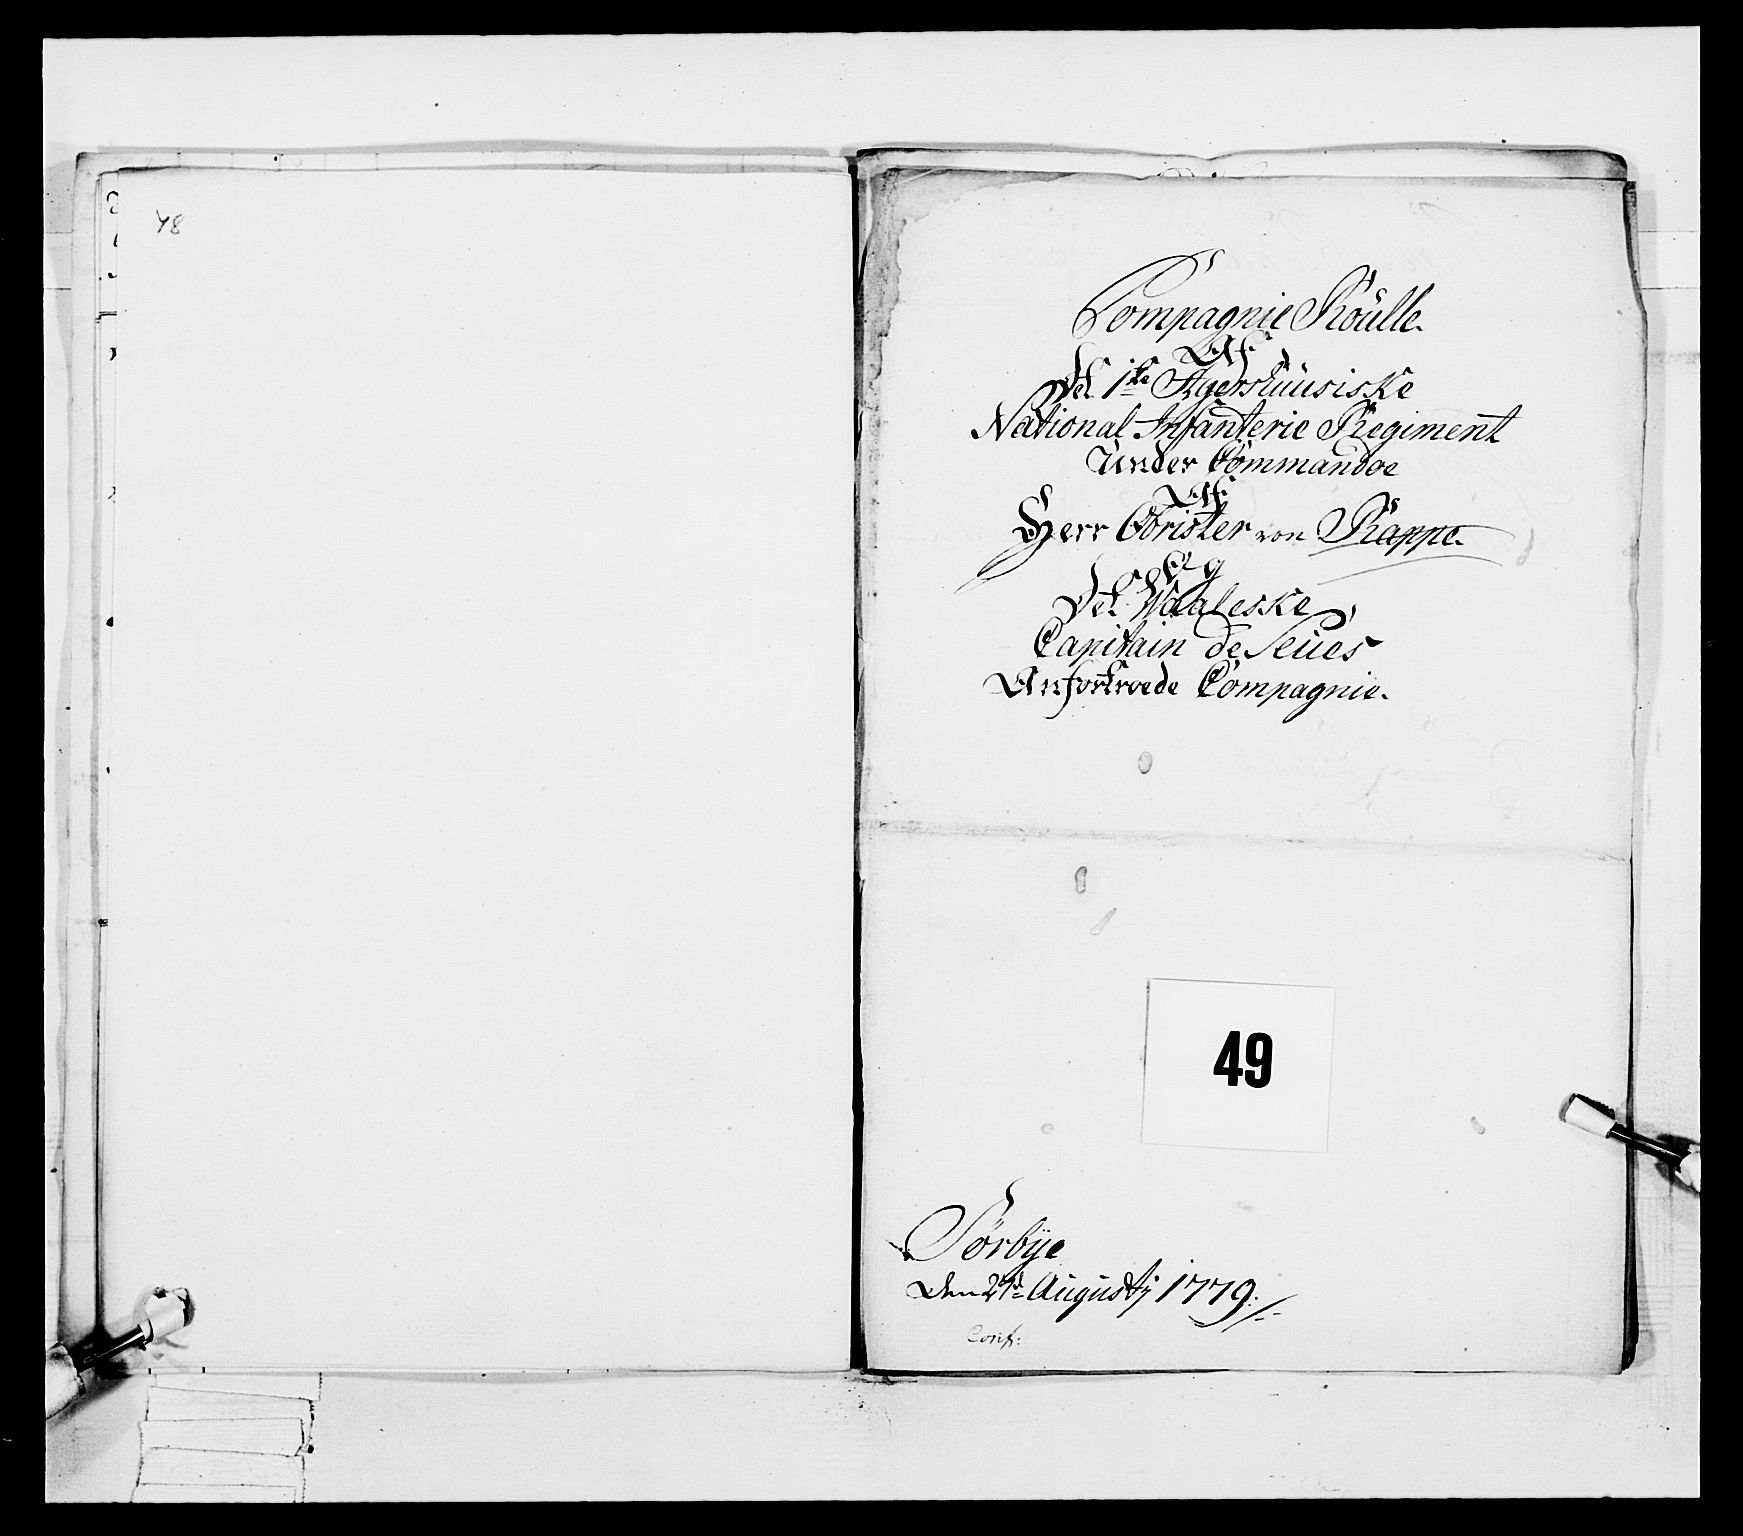 48
Compagnie Roülle.
Af
Det 1ste Agershuusiske
National Infanterie Regiment
Under Commandoe
Af
Herr Obrister von Rappe.
Og
Det Waaleske
Capitain de Seües
Anfortroede Compagnie.
49
Sørbÿe
Den 21de Augustj 1779
Conf: